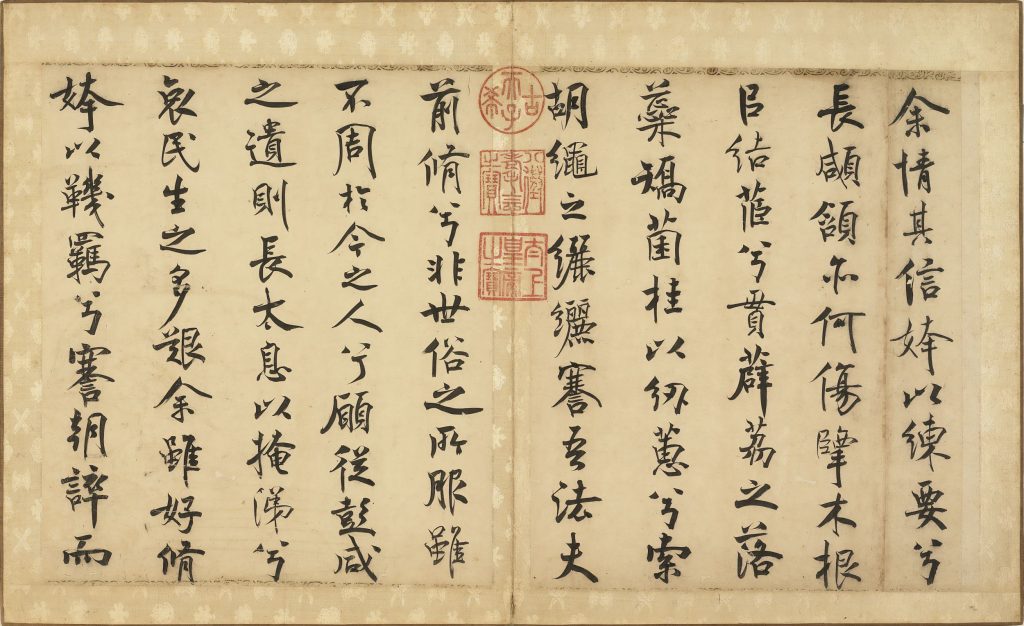 余情其信姱以練要兮
長顑頷亦何傷擥木根
㠯結茝兮貫薜荔之落
蘂矯菌桂以紉蕙兮索
胡繩之纚纚謇吾法夫
前脩兮非世俗之所服雖
不周於今之人兮願從彭咸
之遺則長太息以掩涕兮
哀民生之多艱余雖好脩
姱以鞿羈兮謇朝誶而
古稀天子
八徵耄念之寶
太上皇帝之寶